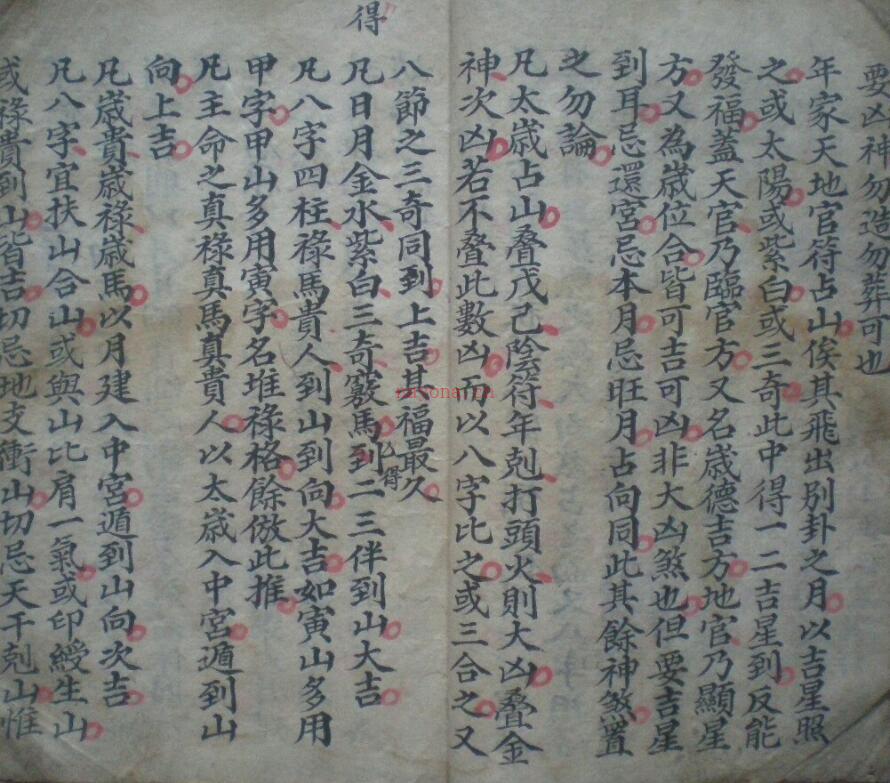 要凶神勿造勿葬可也
年家天地官符占山俟其飛出別卦之月以吉星照
之或太陽或紫白或三奇此中得一二吉星到反能
發福蓋天官乃臨官方又名歲德吉方地官乃顯星
方又為歲位合皆可吉可凶非大凶煞也但要吉星
到耳忌還宮忌本月忌旺月占向同此其餘神煞置
之勿論
凡太歲占山叠戊己陰符年剋打頭火則大凶叠金
神次凶若不叠此數凶而以八字比之或三合之又
得
八節之三奇同到上吉其福最久
凡日月金水紫白三奇竅馬到二三伴到山大吉
得
凡八字四柱祿馬貴人到山到向大吉如寅山多用
甲字甲山多用寅字名堆祿格餘倣此推
凡主命之真祿真馬真貴人以太歲入中宮遁到山
向上吉
凡歲貴歲祿歲馬以月建入中宮遁到山向次吉
凡八字宜扶山合山或與山比肩一氣或印綬生山
或祿貴到山皆吉切忌地支衝山切忌天干剋山惟